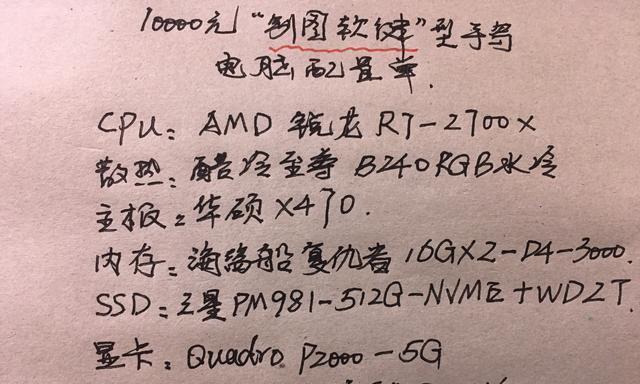 10000元“制图软健”型手写
电脑配置单.
CPU: AMD 锐龙 R7-2700x
散热: 酷冷至尊 B240RGB水冷
主板: 华硕 X470.
内存: 海盗船复仇者 16GX2-D4-3000.
SSD: 三星PM981-512G-NVME+WD2T.
显卡: Quadro P2000-5G